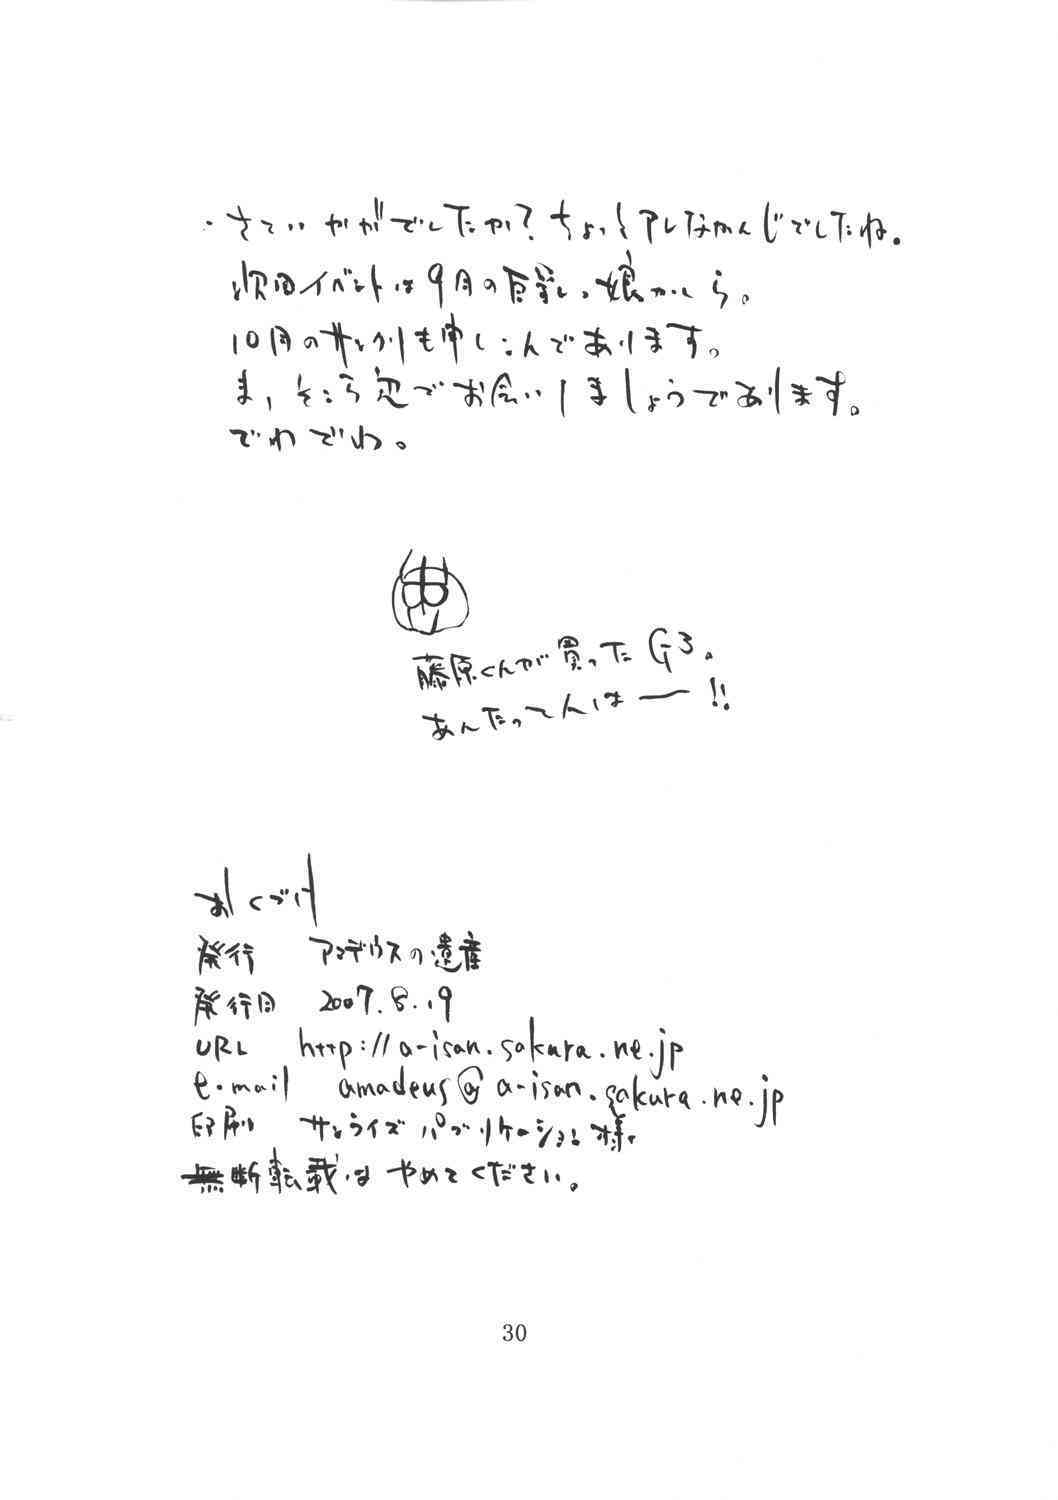 ・さていかがでしたか？ちょっとアレなかんじでしたね。
次回イベントは9月の巨乳っ娘かしら。
10月のサンクリも申しこんであります。
ま、そこら辺でお会いしましょうであります。
でわでわ。
藤原くんが買ったG3。
あんたって人はー!!
おくづけ
発行 アマデウスの遺産
発行日 2007.8.19
URL http://a-isan.sakura.ne.jp
e-mail amadeus@a-isan.sakura.ne.jp
印刷 サンライズパブリケーション様
無断転載はやめてください。
30